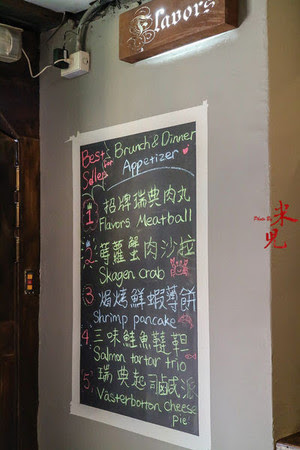 Flavors
Best
Seller
for
Brunch & Dinner
Appetizer
1. 招牌瑞典肉丸
Flavors Meatball
2. 蒔蘿蟹肉沙拉
Skagen crab
3 焗烤鮮蝦薄餅
Shrimp pancake
4. 三味鮭魚韃靼
Salmon tartar trio
5. 瑞典起司鹹派
Västerbotton Cheese
Pie
Photo By
米兒